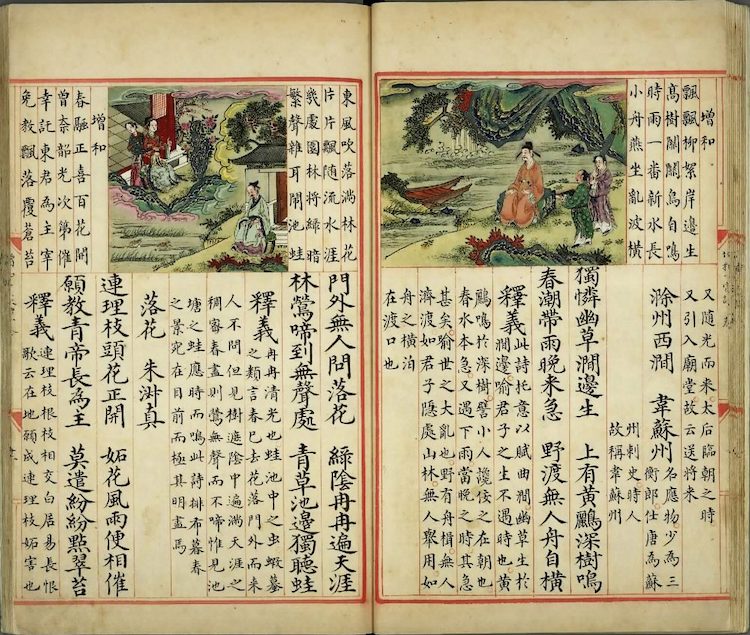 增和
飄飄柳絮岸邊生
高樹關關鳥自鳴
時雨一番新水長
小舟燕坐亂波橫
又隨光而来太后臨朝之時
又引入廟堂故云送將来
滁州西澗 韋蘇州 名應物少為三
衛郎仕唐為蘇
州刺史時人
故稱韋蘇州
獨憐幽草澗邊生 上有黃鸝深樹鳴
春潮帶雨晚来急 野渡無人舟自橫
釋義 此詩托意以賦曲澗幽草生於
澗邊喻君子之生不遇時也黃
鸝鳴於深樹譬小人讒佞之在朝也
春水本急又遇下雨當晚之時其急
甚矣喻世之大亂也野有舟楫無人
濟渡如君子隱處山林無人舉用如
舟之橫泊
在渡口也
東風吹落滿林花
片片飄随流水涯
幾處園林將綠暗
繁聲雜耳鬧池蛙
增和
春驅正喜百花開
曾奈韶光次第催
幸託東君為主宰
免教飄落覆蒼苔
門外無人問落花 綠陰冉冉遍天涯
林鶯啼到無聲處 青草池邊獨聽蛙
釋義 冉冉清光也蛙池中之虫蝦蟇
之類言春已去花落門外而来
人不問但見樹遮陰中遍滿天涯之
稠審春盡則鶯無聲而不啼惟見池
塘之蛙應時而鳴此詩排布暮春
之景宛在目前而極其明盡焉
落花 朱淑真
連理枝頭花正開 妬花風雨便相催
願教青帝長為主 莫遣紛紛點翠苔
釋義 連理枝根枝相交白居易長恨
歌云在地願成連理枝妬害也